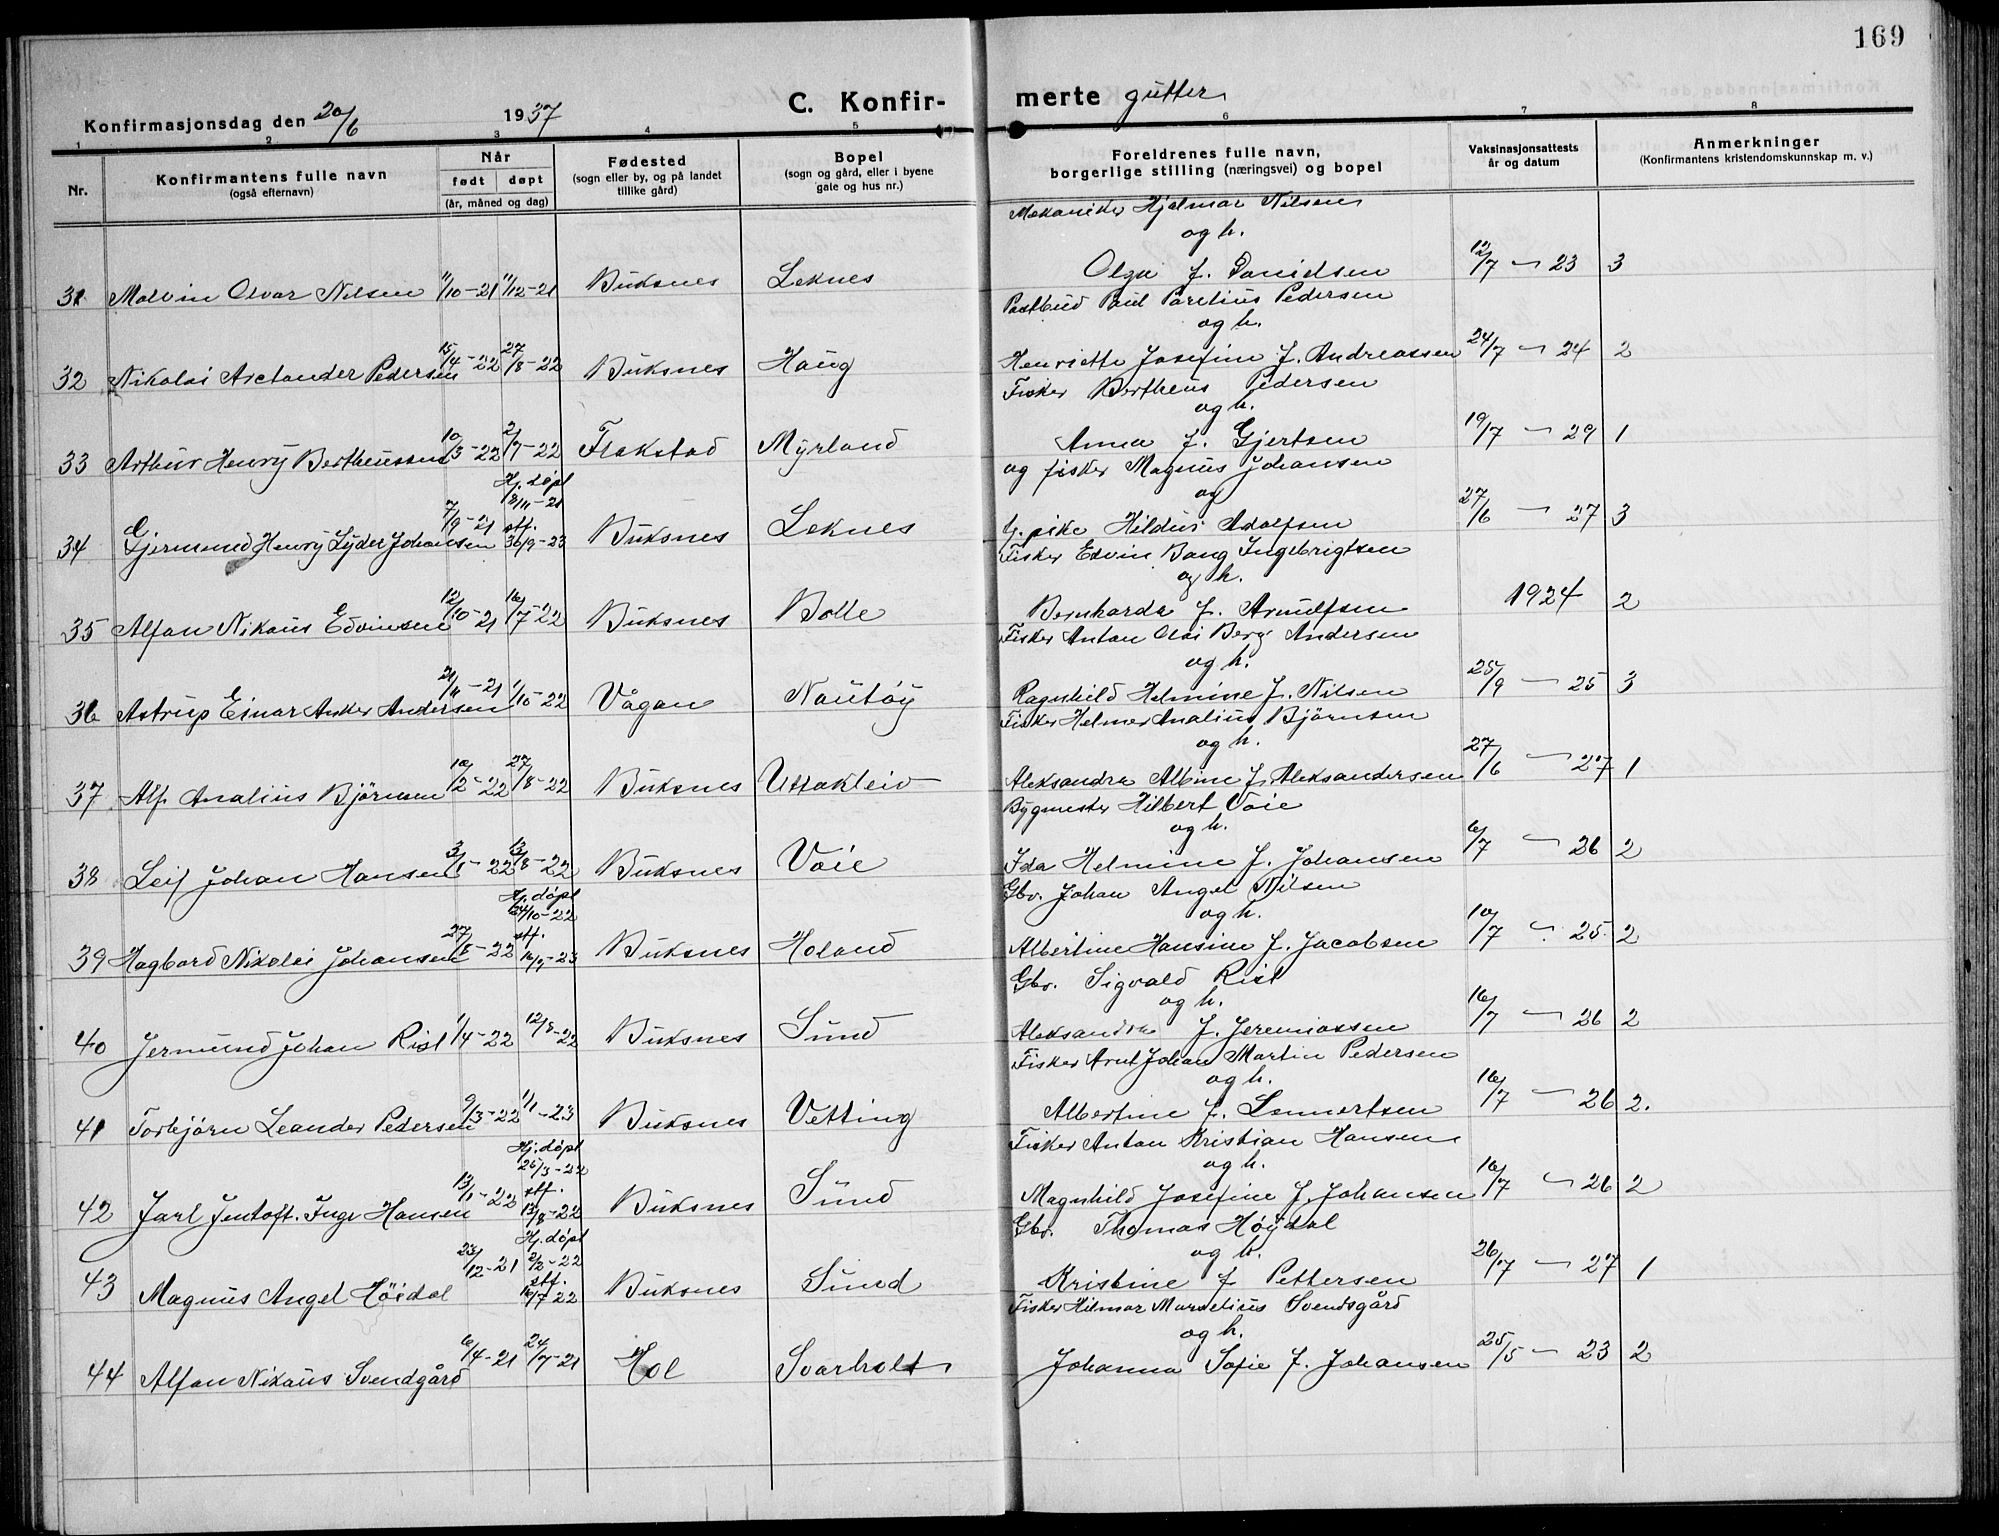 169
C. Konfirmerte gutter
Konfirmasjonsdag den 20/6 1937
1 2 3 4 5 6 7 8
Nr. Konfirmantens fulle navn (også efternavn) Når født døpt (år, måned og dag) Fødested (sogn eller by, og på landet tillike gård) Bopel (sogn og gård, eller i byene gate og hus nr.) Foreldrenes fulle navn, borgerlige stilling (næringsvei) og bopel Vaksinasjonsattests år og datum Anmerkninger (Konfirmantens kristendomskunnskap m. v.)
Mekaniker Hjalmar Nilsen
og h.
31 Malvin Alvar Nilsen 11/10-21 11/12-21 Buksnes Leknes Olga f. Danielsen 12/7 - 23 3
Postbud Paul Parelius Pedersen
og h.
32 Nikolai Arctander Pedersen 15/4-22 27/8-22 Buksnes Haug Henriette Josefine f. Andreassen 24/7 - 24 2
Fisker Bertheus Pedersen
og h.
33 Arthur Henry Bertheussen 10/3-22 2/7-22 Flakstad Myrland Anna f. Gjertsen 19/7 - 29 1
og fisker Magnus Johansen
og
34 Gjermund Henry Lyder Johansen 7/9-21 Hj. døpt 8/11-21 stf. 30/9-23 Buksnes Leknes g. pike Hildur Adolfsen 27/6 - 27 3
Fisker Edvin Bang Ingebrigtsen
og h.
35 Alfon Nikaus Edvinsen 12/10-21 16/7-22 Buksnes Bolle Bernharda f. Arnulfsen 1924 2
Fisker Anton Olai Berg Andersen
og h.
36 Astrup Einar Anker Andersen 21/11-21 1/10-22 Vågan Nautøy Ragnhild Helmine f. Nilsen 25/9 - 25 3
Fisker Helmer Analius Bjørnsen
og h.
37 Alf Analius Bjørnsen 10/2-22 27/8-22 Buksnes Uttakleiv Aleksandra Albine f. Aleksandersen 27/6 - 27 1
Bygmester Hilbert Voie
og h.
38 Leif Johan Hansen 3/1-22 13/8-22 Buksnes Voie Ida Helmine f. Johansen 6/7 - 26 2
Gbr. Johan Angel Nilsen
og h.
39 Hagbard Nikolai Johansen 27/8-22 Hj. døpt 24/10-22 stf. 16/9-23 Buksnes Holand Albertine Hansine f. Jacobsen 10/7 - 25 2
Gbr. Sigvald Rist
og h.
40 Jermund Johan Rist 1/4-22 12/8-22 Buksnes Sund Aleksandra f. Jeremiassen 16/7 - 26 2
Fisker Arnt Johan Martin Pedersen
og h.
41 Torbjørn Leander Pedersen 9/3-22 1/1-23 Buksnes Vetting Albertine f. Lennertsen 16/7 - 26 2.
Fisker Anton Kristian Hansen
og h.
42 Jarl Jentoft Inge Hansen 13/1-22 Hj. døpt 25/3-22 stf. 13/8-22 Buksnes Sund Magnhild Josefine f. Johansen 16/7 - 26 2
Gbr. Thomas Høydal
og h.
43 Magnus Angel Høidal 23/12-21 Hj. døpt 2/2-22 stf. 16/7 22 Buksnes Sund Kristine f. Pettersen 26/7 - 27 1
Fisker Hilmar Marselius Svendsgård
og h.
44 Alfon Nikaus Svendgård 6/4-21 24/7-21 Hol Svarholt Johanna Sofie f. Johansen 25/5 - 23 2